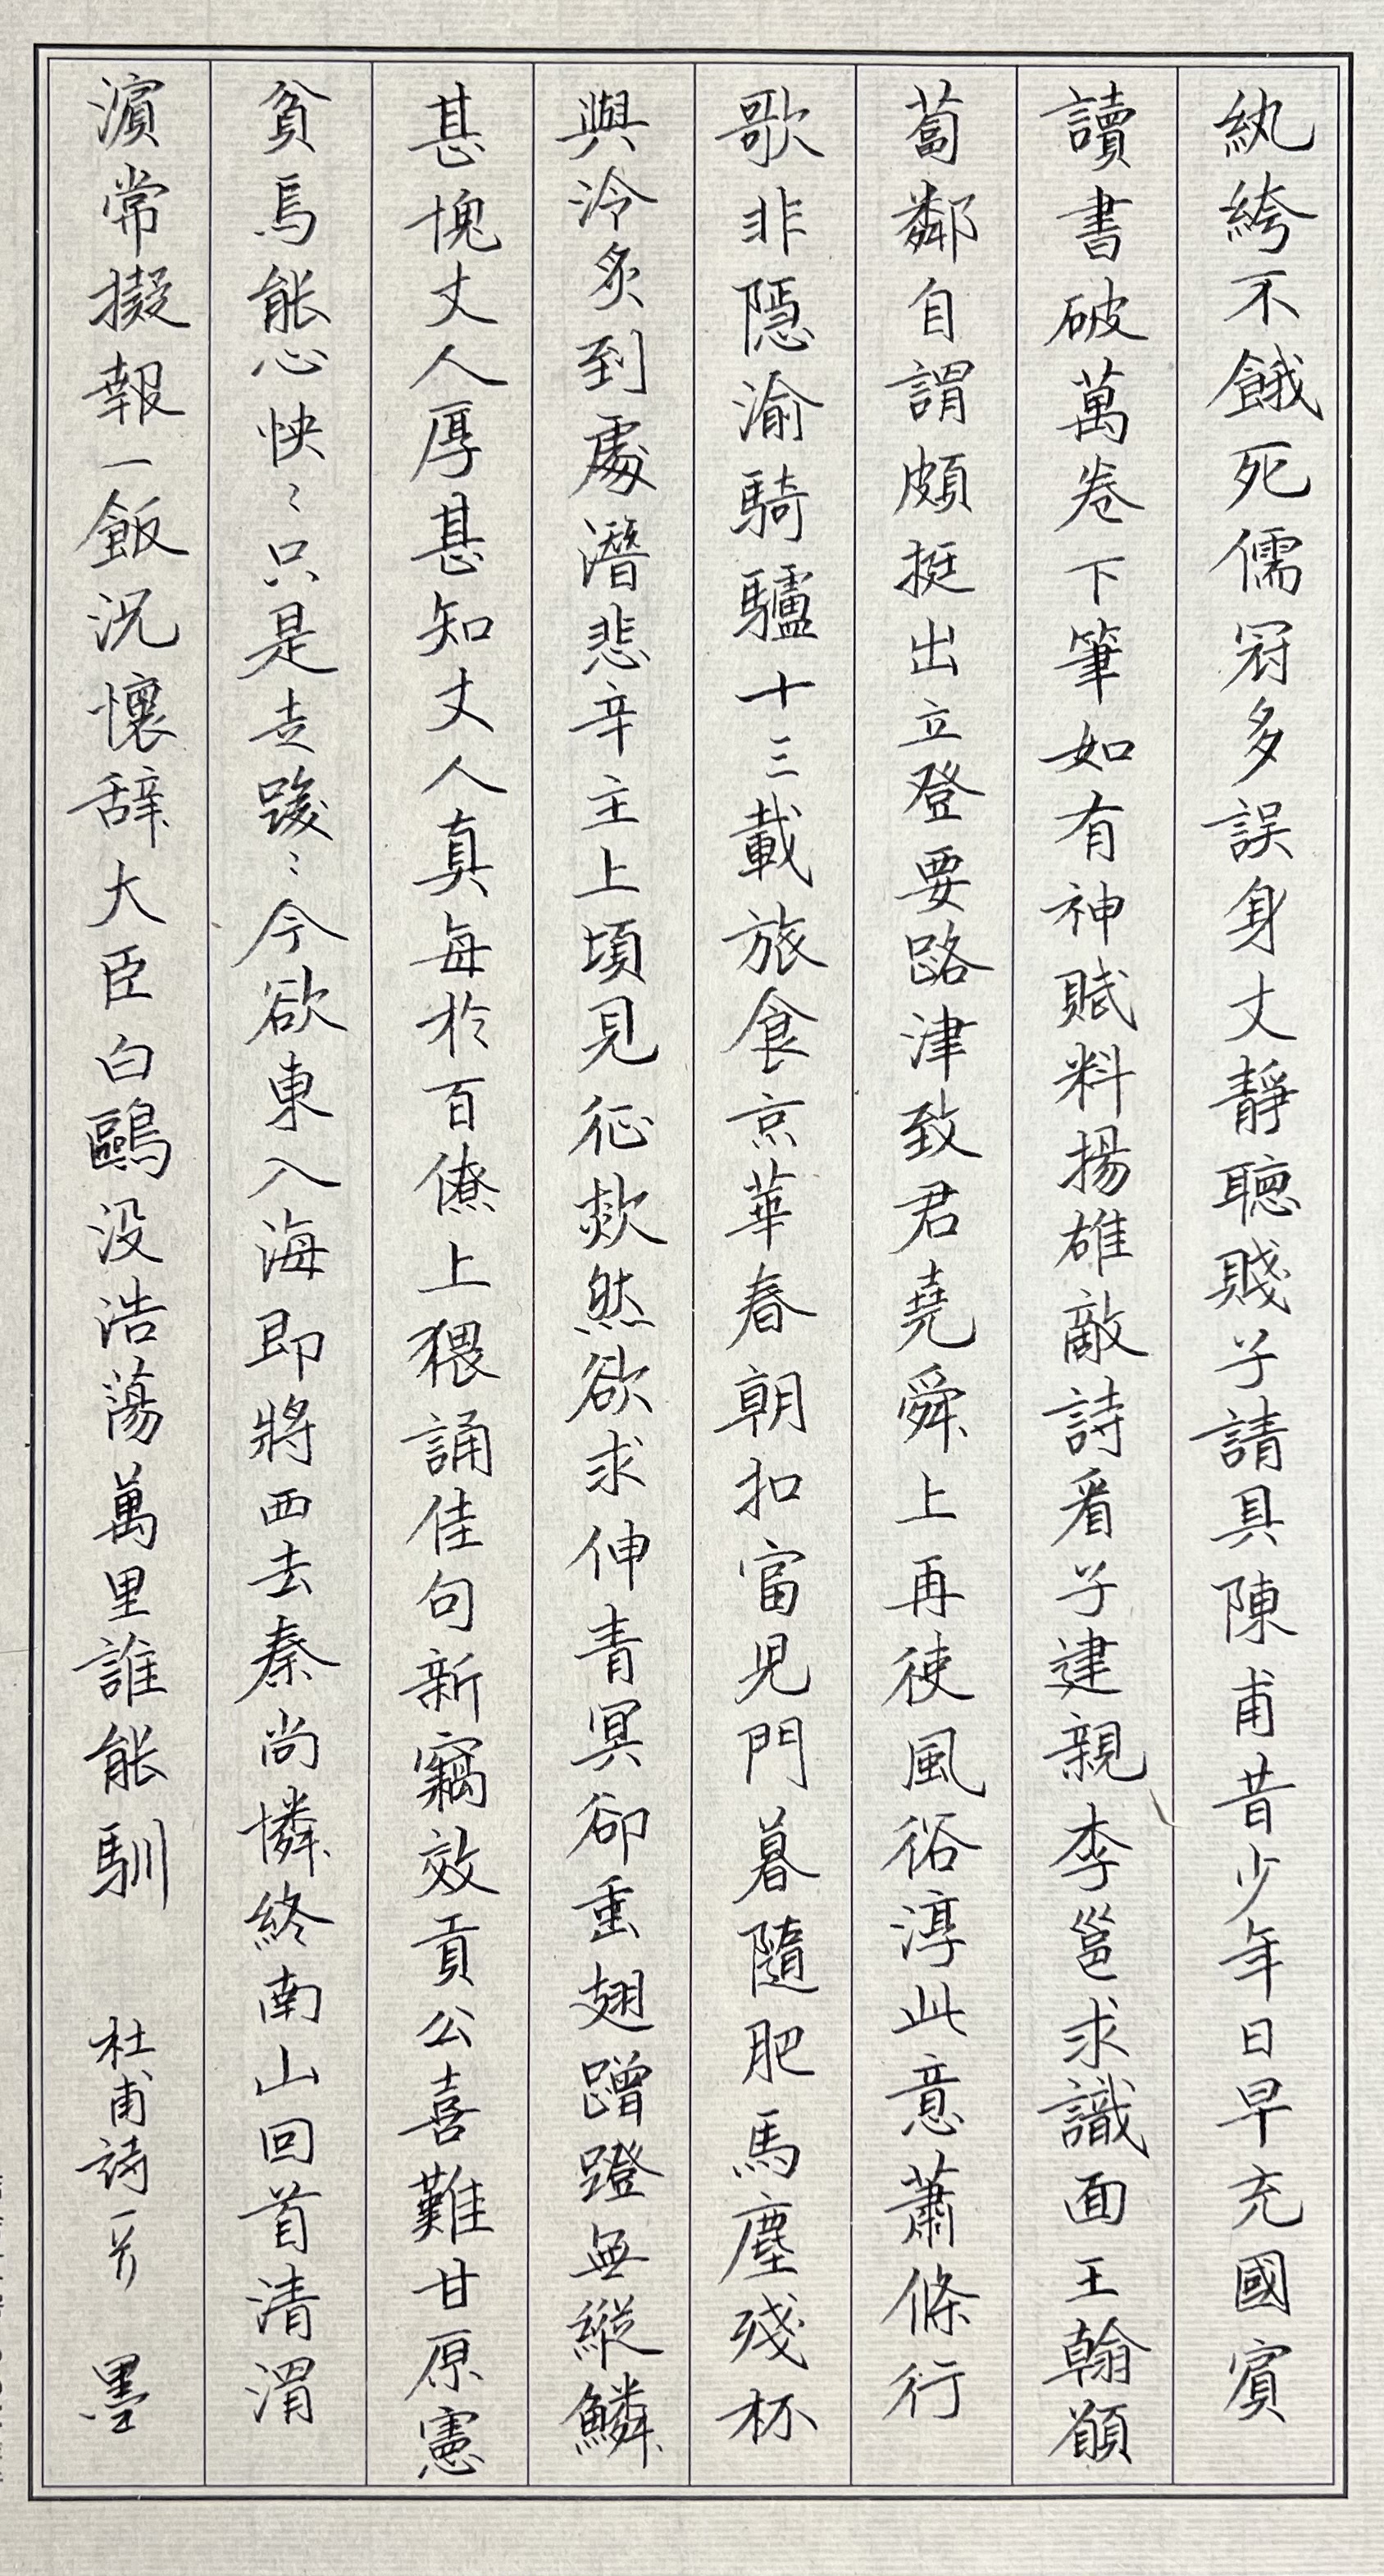 紈絝不餓死儒冠多誤身丈靜聽賤子請具陳甫昔少年日早充國賓
讀書破萬卷下筆如有神賦料揚雄敵詩看子建親李邕求識面王翰願
蔔鄰自謂頗挺出立登要路津致君堯舜上再使風俗淳此意蕭條行
歌非隱渝騎驢十三載旅食京華春朝扣富兒門暮隨肥馬塵殘杯
與冷炙到處潛悲辛主上頃見征欻然欲求伸青冥卻垂翅蹭蹬無縱鱗
甚愧丈人厚甚知丈人真每於百僚上猥誦佳句新竊效貢公喜難甘原憲
貧焉能心怏〻只是走踆〻今欲東入海即將西去秦尚憐終南山回首清渭
濱常擬報一飯況懷辭大臣白鷗没浩蕩萬里誰能馴 杜甫詩一首 墨